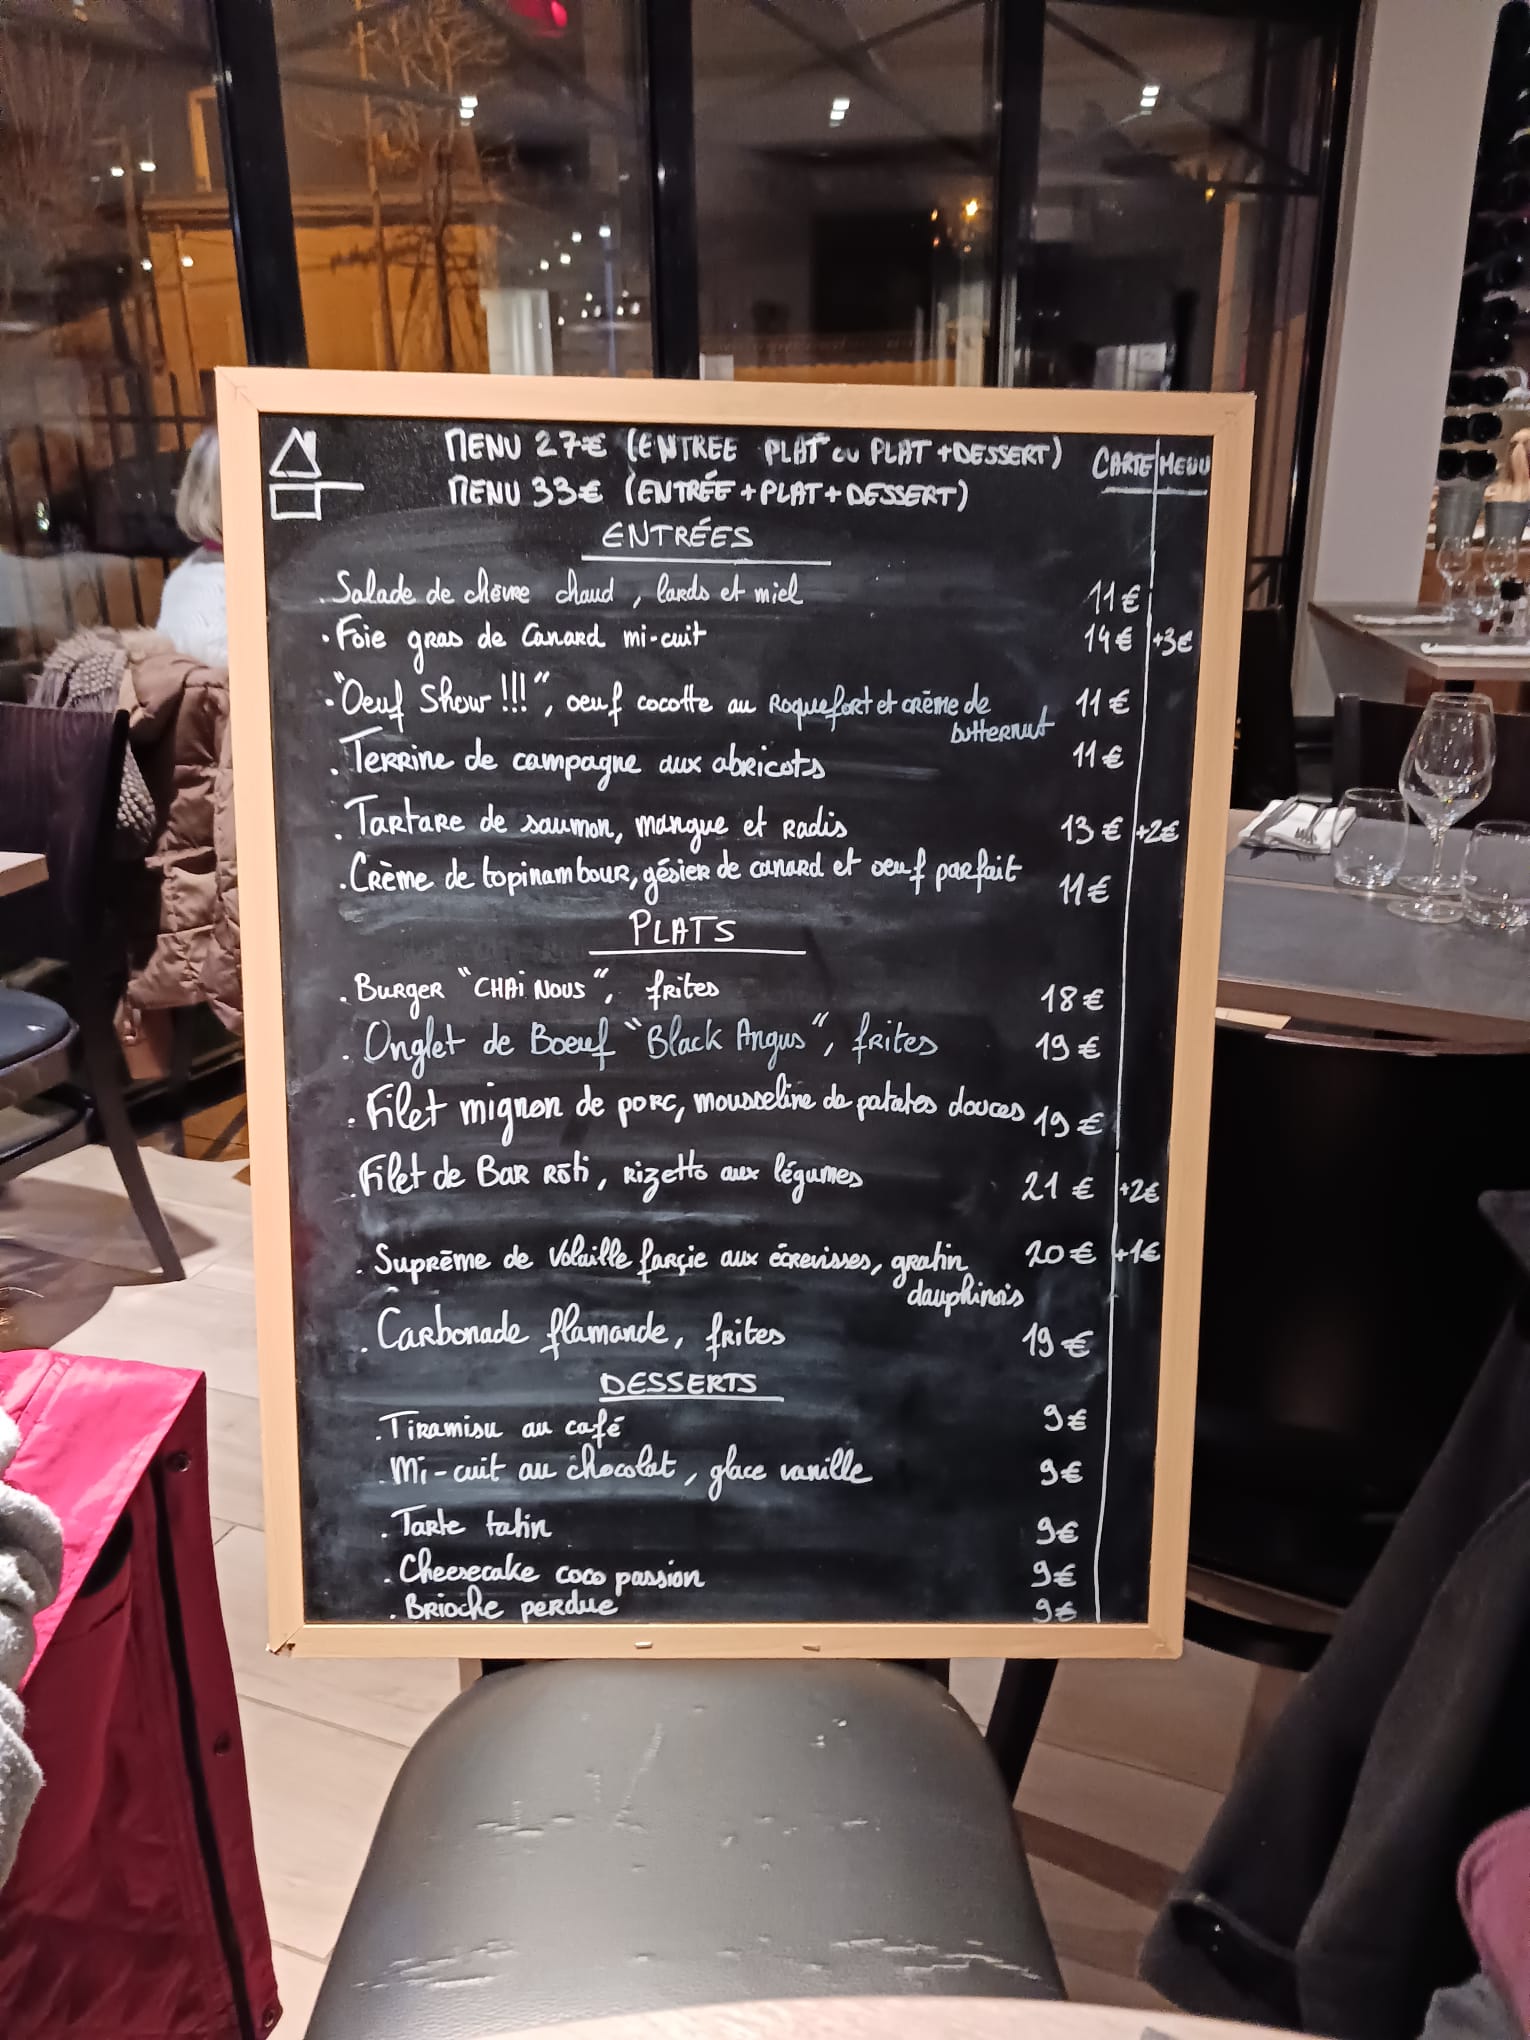 MENU 27€ (ENTREE PLAT OU PLAT + DESSERT) CARTE MENU
MENU 33€ (ENTRÉE + PLAT + DESSERT)
ENTRÉES
. Salade de chèvre chaud, lards et miel 11€
. Foie gras de Canard mi-cuit 14€ +3€
. "Oeuf Show !!!", oeuf cocotte au Roquefort et crème de 11€
butternut
. Terrine de campagne aux abricots 11€
. Tartare de saumon, mangue et Radis 13€ +2€
. Crème de topinambour, gésier de canard et oeuf parfait 11€
PLATS
. Burger "CHAI NOUS", frites 18€
. Onglet de Boeuf "Black Angus", frites 19€
. Filet mignon de porc, mousseline de patates douces 19€
. Filet de Bar Rôti, rizetto aux légumes 21€ +2€
. Suprême de Volaille farçie aux écrevisses, gratin 20€ +1€
dauphinois
. Carbonade flamande, frites 19€
DESSERTS
. Tiramisu au café 9€
. Mi-cuit au chocolat, glace vanille 9€
. Tarte tatin 9€
. Cheesecake coco passion 9€
. Brioche perdue 9€